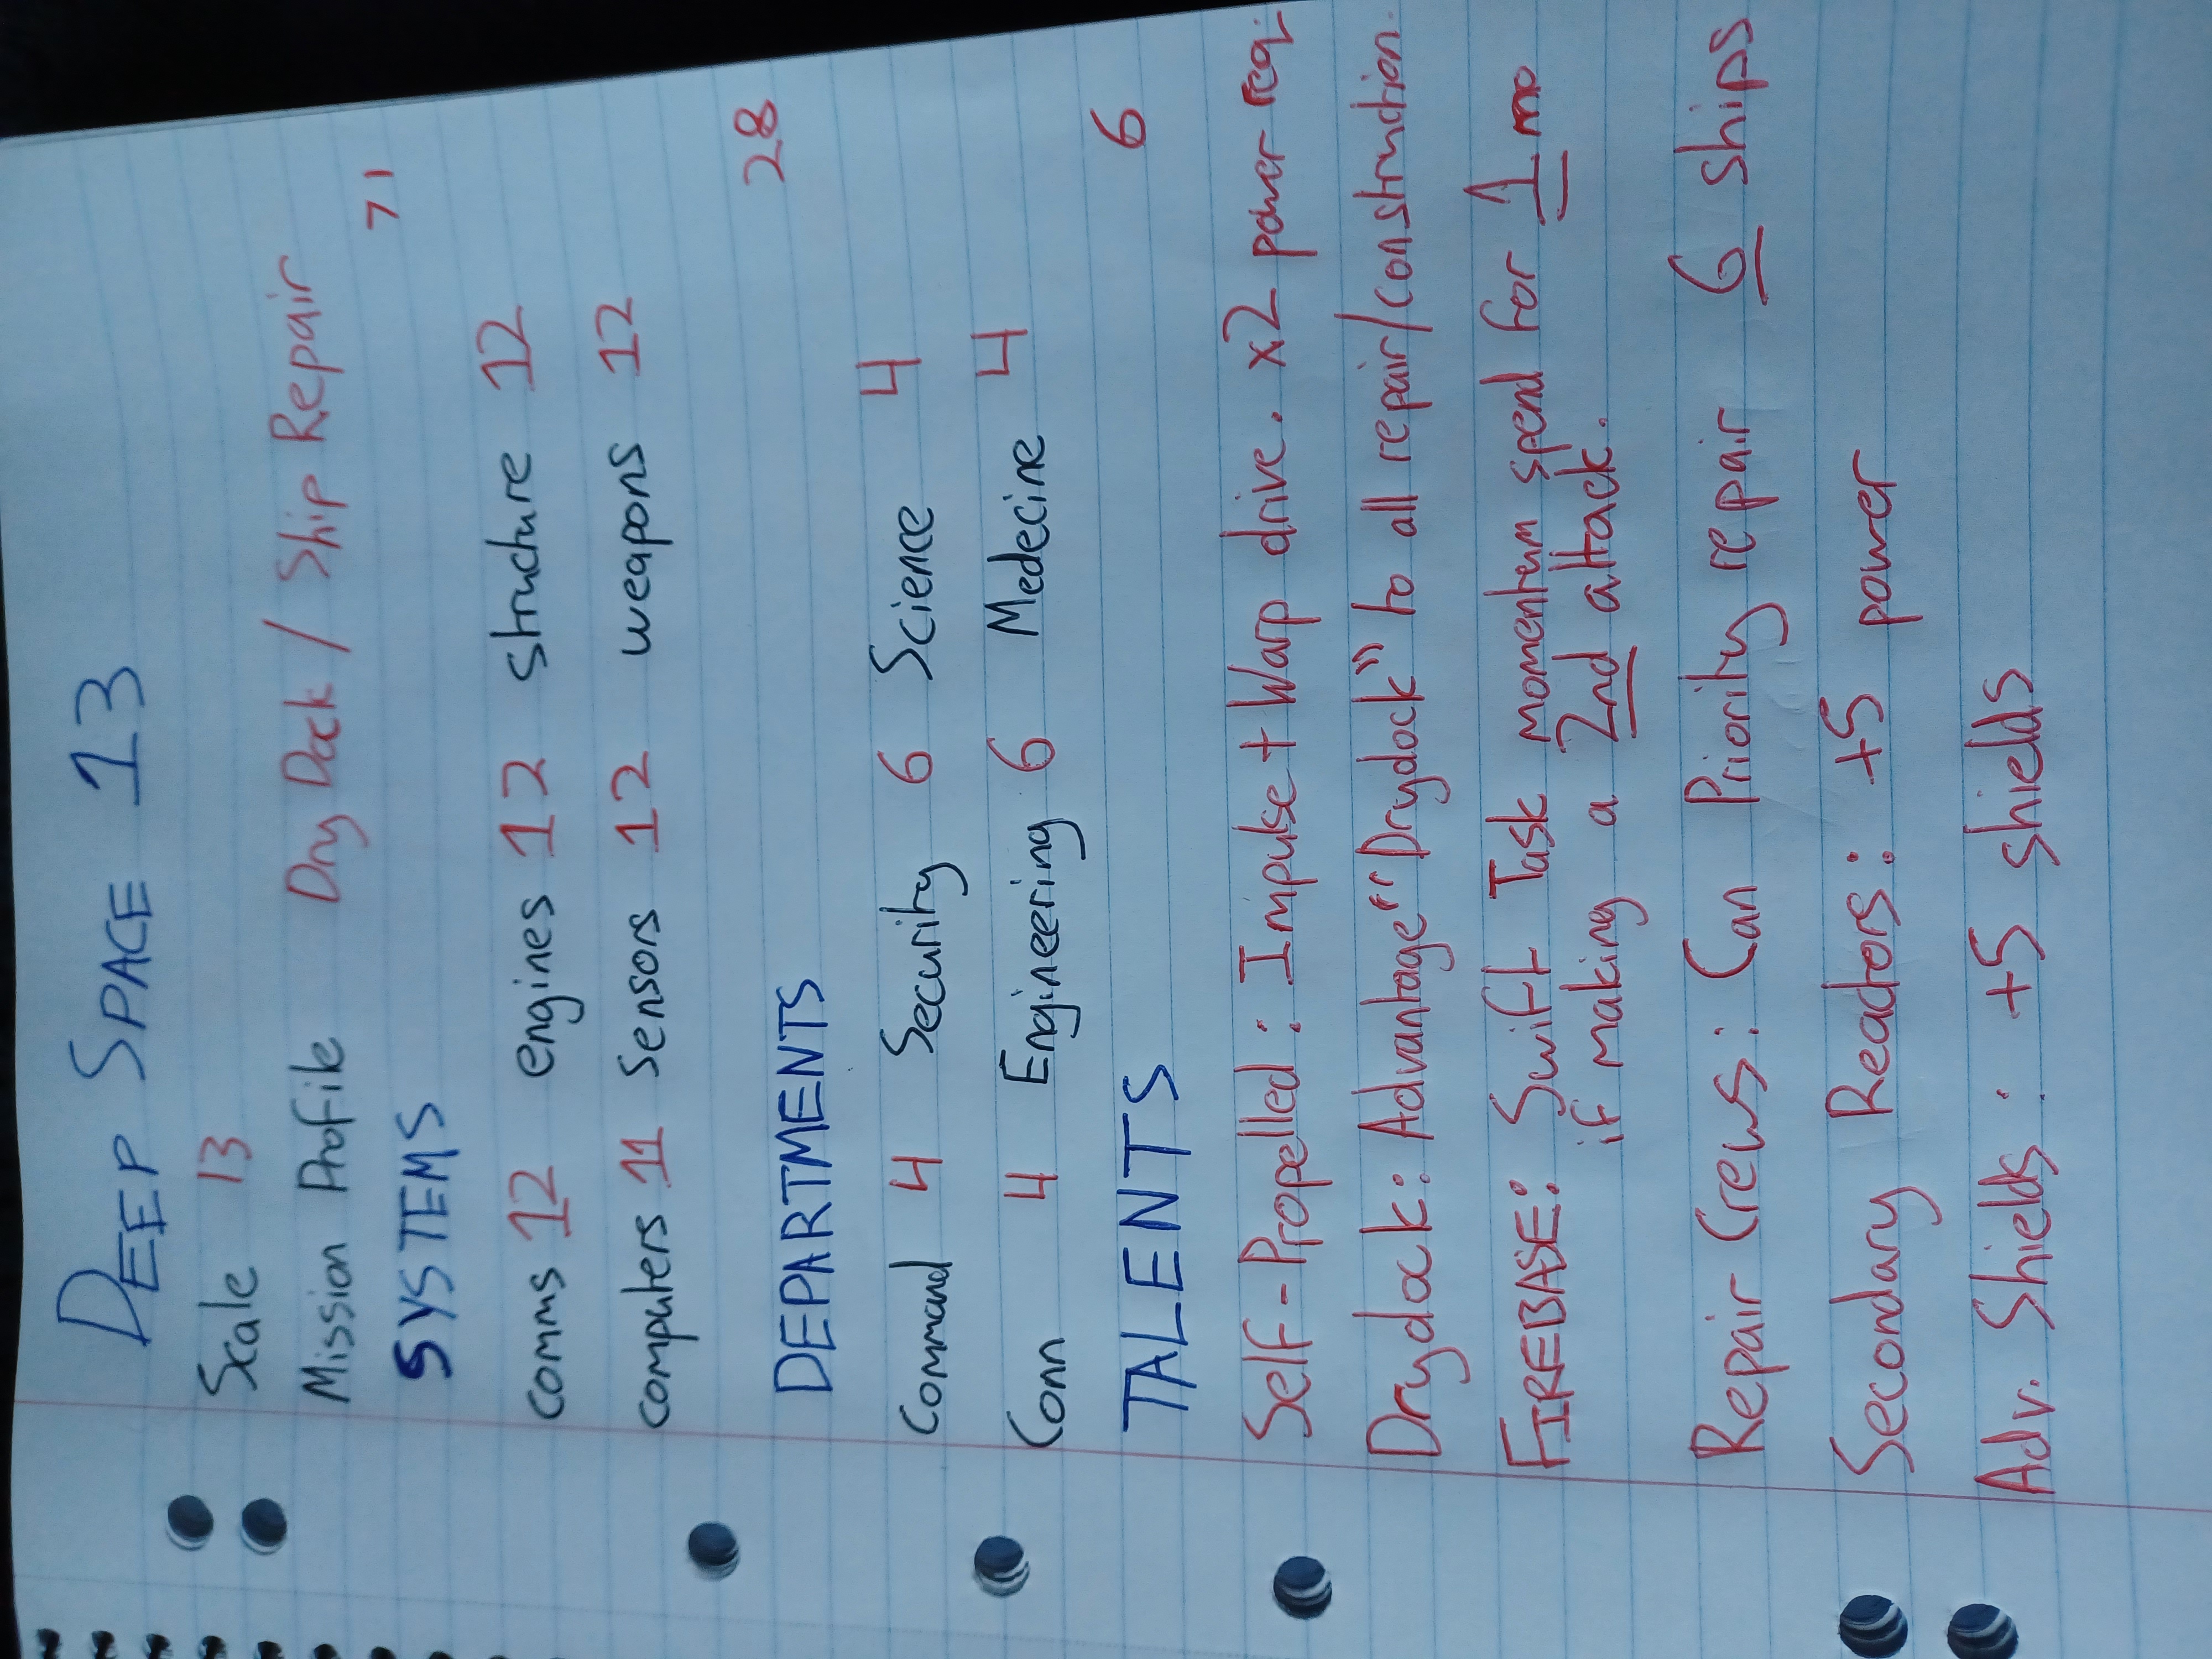 DEEP SPACE 13
Scale 13
Mission Profile Dry Dock / Ship Repair
SYSTEMS 71
comms 12 engines 12 structure 12
computers 11 sensors 12 weapons 12
DEPARTMENTS 28
Command 4 Security 6 Science 4
Conn 4 Engineering 6 Medecine 4
TALENTS 6
Self-Propelled: Impulse + Warp drive. x2 power req.
Drydock: Advantage "Drydock" to all repair/construction.
FIREBASE: Swift Task momentum spend for 1 mo
if making a 2nd attack.
Repair Crews: Can Priority repair 6 ships
Secondary Reactors: +5 power
Adv. Shields: +5 shields